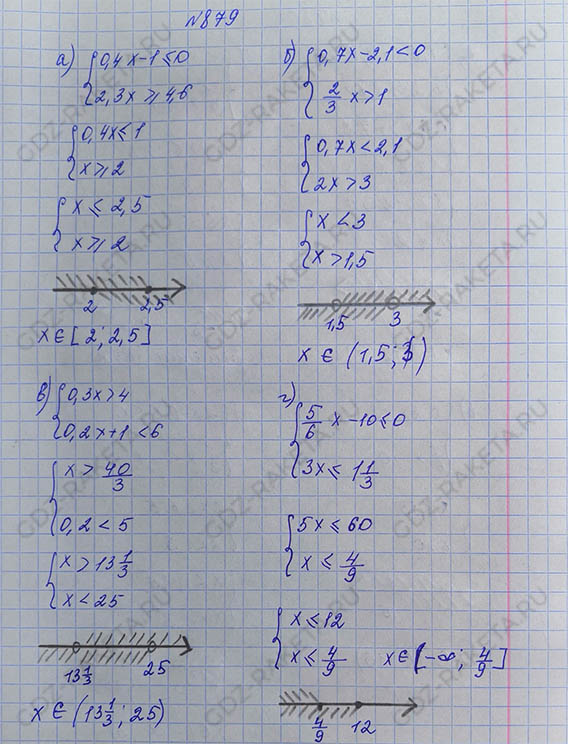 №879
а) { 0,4x-1≤0
2,3x ≥ 4,6
{ 0,4x≤1
x≥2
{ x ≤ 2,5
x≥2
2 2,5
x∈[2; 2,5]
б) { 0,7x-2,1<0
2/3 x>1
{ 0,7x<2,1
2x>3
{ x<3
x>1,5
1,5 3
x ∈ (1,5; 3)
в) { 0,3x>4
0,2x+1<6
{ x> 40/3
0,2<5
{ x>13 1/3
x<25
13 1/3 25
x ∈ (13 1/3; 25)
г) { 5/6 x-10≤0
3x≤ 1 1/3
{ 5x≤60
x ≤ 4/9
{ x≤12
x≤ 4/9 x∈[-∞; 4/9]
4/9 12
GDZ-RAKETA.RU